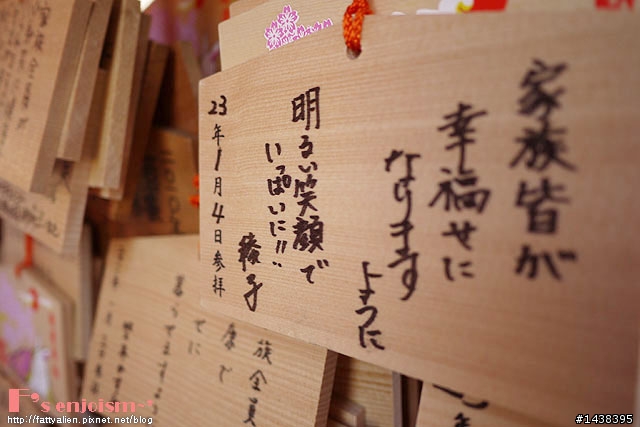 家族皆が
幸福せに
なります
ように
明るい笑顔で
いっぱいに!!
綾子
23年1月4日参拝
族全員
康で
せに
暮らせますよ
F's enjoism~*
http://fattyalien.pixnet.net/blog
#1438395